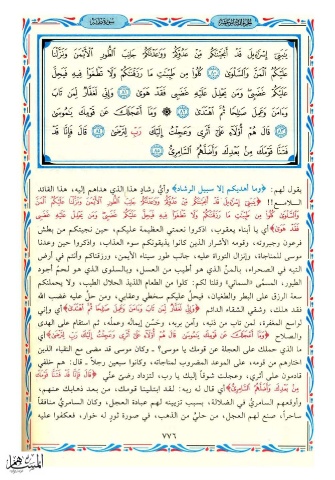 سورة طه
يَٰبَنِىٓ إِسْرَٰٓءِيلَ قَدْ أَنجَيْنَٰكُم مِّنْ عَدُوِّكُمْ وَوَٰعَدْنَٰكُمْ جَانِبَ ٱلطُّورِ ٱلْأَيْمَنَ وَنَزَّلْنَا
عَلَيْكُمُ ٱلْمَنَّ وَٱلسَّلْوَىٰ ٨٠ كُلُوا۟ مِن طَيِّبَٰتِ مَا رَزَقْنَٰكُمْ وَلَا تَطْغَوْا۟ فِيهِ فَيَحِلَّ
عَلَيْكُمْ غَضَبِى وَمَن يَحْلِلْ عَلَيْهِ غَضَبِى فَقَدْ هَوَىٰ ٨١ وَإِنِّى لَغَفَّارٌ لِّمَن تَابَ
وَءَامَنَ وَعَمِلَ صَٰلِحًا ثُمَّ ٱهْتَدَىٰ ٨٢ وَمَآ أَعْجَلَكَ عَن قَوْمِكَ يَٰمُوسَىٰ
٨٣ قَالَ هُمْ أُو۟لَآءِ عَلَىٰٓ أَثَرِى وَعَجِلْتُ إِلَيْكَ رَبِّ لِتَرْضَىٰ ٨٤ قَالَ فَإِنَّا قَدْ
فَتَنَّا قَوْمَكَ مِنۢ بَعْدِكَ وَأَضَلَّهُمُ ٱلسَّامِرِىُّ ٨٥
يقول لهم: ﴿وما أهديكم إلا سبيل الرشاد﴾ وأيّ رشاد هذا الذي هداهم إليه، هذا القائد
﴿يَٰبَنِىٓ إِسْرَٰٓءِيلَ قَدْ أَنجَيْنَٰكُم مِّنْ عَدُوِّكُمْ وَوَٰعَدْنَٰكُمْ جَانِبَ ٱلطُّورِ ٱلْأَيْمَنَ وَنَزَّلْنَا عَلَيْكُمُ ٱلْمَنَّ
وَٱلسَّلْوَىٰ كُلُوا۟ مِن طَيِّبَٰتِ مَا رَزَقْنَٰكُمْ وَلَا تَطْغَوْا۟ فِيهِ فَيَحِلَّ عَلَيْكُمْ غَضَبِى وَمَن يَحْلِلْ عَلَيْهِ غَضَبِى
فَقَدْ هَوَىٰ﴾ أي يا أبناء يعقوب، اذكروا نعمتي العظيمة عليكم، حين نجيتكم من بطش
فرعون وجبروته، وقومه الأشرار الذين كانوا يذيقونكم سوء العذاب، واذكروا حين وعدنا
موسى للمناجاة، وإنزال التوراة عليه، جانب طور سيناء الأيمن، ورزقناكم وأنتم في أرض
التيه في الصحراء، بالمنّ الذي هو أطيب من العسل، وبالسلوى الذي هو لحم أجود
الطيور، المسمّى «السماني» وقلنا لكم: كلوا من الطعام اللذيذ الحلال الطيب، ولا يحملنكم
سعة الرزق على البطر والطغيان، فيحلّ عليكم سخطي وعقابي، ومن حلّ عليه غضب الله
فقد هلك، وشقي الشقاء الدائم ﴿وَإِنِّى لَغَفَّارٌ لِّمَن تَابَ وَءَامَنَ وَعَمِلَ صَٰلِحًا ثُمَّ ٱهْتَدَىٰ﴾ أي وإني
لواسع المغفرة، لمن تاب من ذنبه، وآمن بربه، وحسّن إيمانه وعمله، ثم استقام على الهدى
والصلاح ﴿وَمَآ أَعْجَلَكَ عَن قَوْمِكَ يَٰمُوسَىٰ قَالَ هُمْ أُو۟لَآءِ عَلَىٰٓ أَثَرِى وَعَجِلْتُ إِلَيْكَ رَبِّ لِتَرْضَىٰ﴾ أي
ما الذي حملك على العجلة عن قومك يا موسى؟ ـ وكان موسى قد مضى مع النقباء الذين
اختارهم من قومه، على الموعد المضروب لمناجاته، وكانوا سبعين رجلاً ـ قال: هم خلفي
قادمون على أثري، وعجلت شوقاً إليك يا رب، لتزداد رضىً عنّي ﴿قَالَ فَإِنَّا قَدْ فَتَنَّا قَوْمَكَ
مِنۢ بَعْدِكَ وَأَضَلَّهُمُ ٱلسَّامِرِىُّ﴾ أي قال له ربه: لقد ابتلينا قومك، من بعد ذهابك عنهم،
وأوقعهم السامريّ في الضلالة، بسبب تزيينه لهم عبادة العجل، وكان السامريّ منافقاً
ساحراً، صنع لهم العجل، من حليّ من الذهب، في صورة ثور له خوار، فعكفوا عليه
٧٧٦